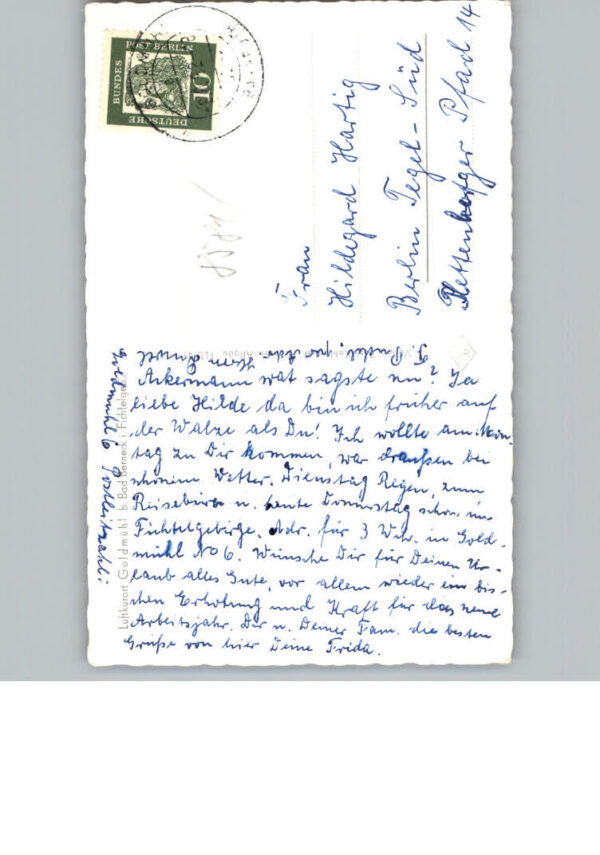 DEUTSCHE
BUNDES
POST BERLIN
10
Frau
Hildegard Hartig
Berlin Tegel-Süd
Pfad 14
Ackermann wat sagste nu? Ja
liebe Hilde da bin ich früher auf
der Walze als Du! Ich wollte am Mon-
tag zu Dir kommen, war draußen bei
schönem Wetter. Dienstag Regen, zum
Reisebüro u. heute Donnerstag schon im
Fichtelgebirge. Adr. für 3 Wch. in Gold-
mühl No 6. Wünsche Dir für Deinen Ur-
laub alles Gute, vor allem wieder ein bis-
chen Erholung und Kraft für das neue
Arbeitsjahr. Dir u. Deiner Fam. die besten
Grüße von hier Deine Frida.
Goldmühl 6 Postleitzahl:
Luftkurort Goldmühl b. Bad Berneck i. Fichtelgeb.